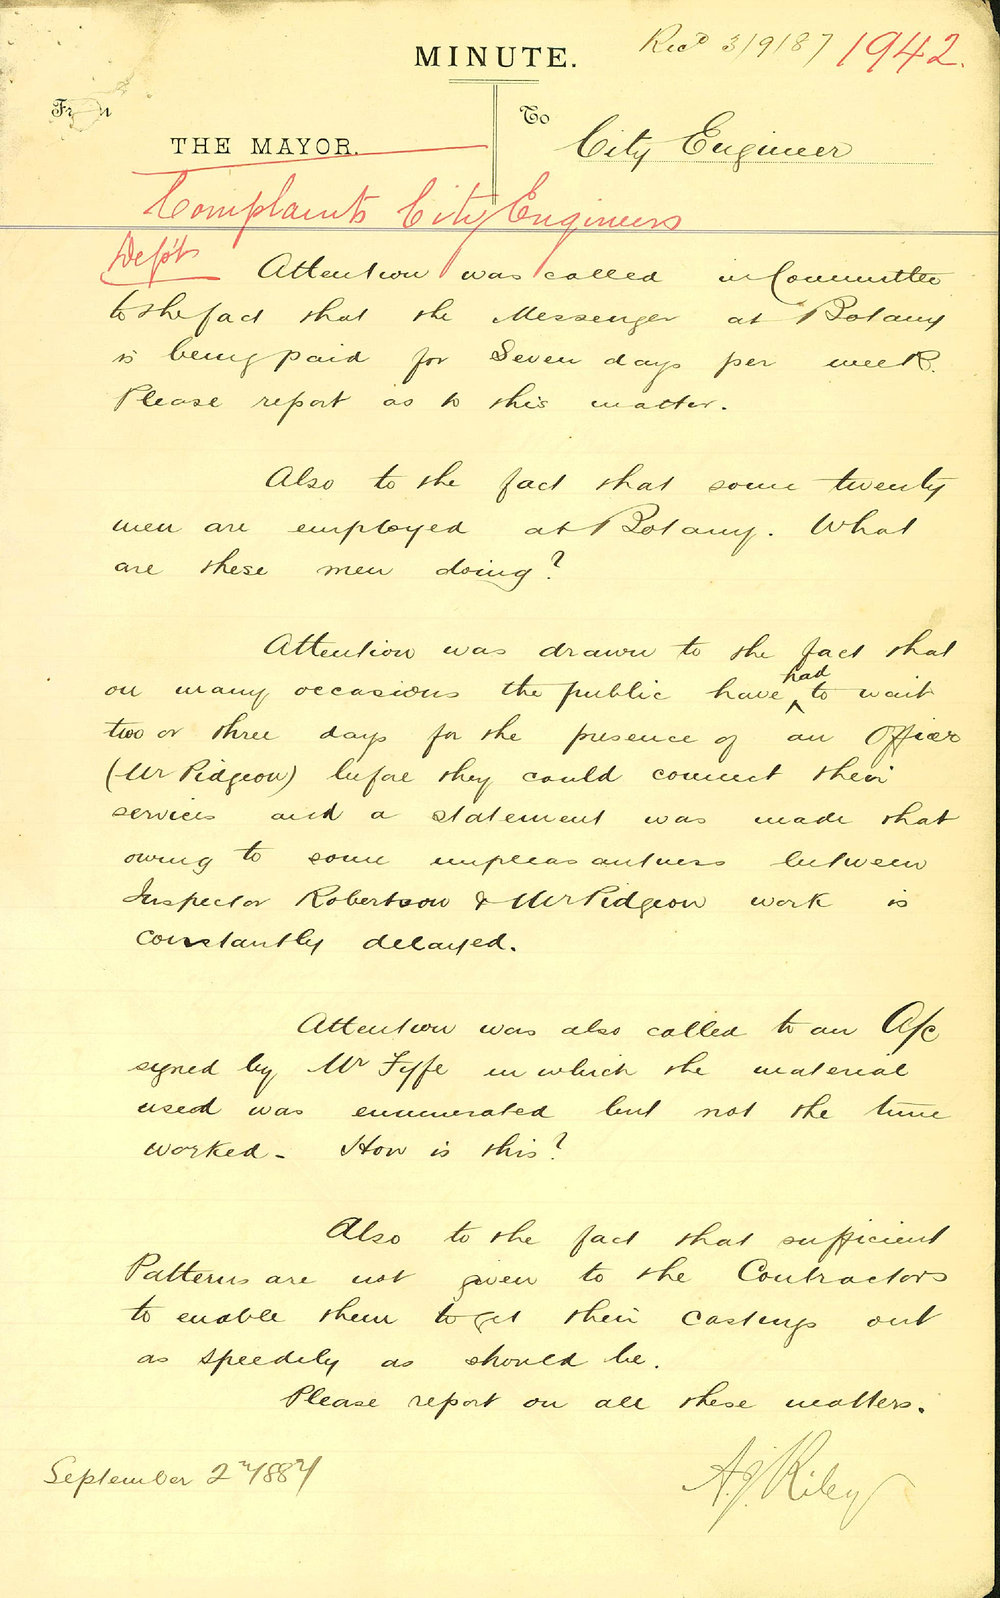 Recd 3/9/87 1942.
MINUTE.
From
To
THE MAYOR.
City Engineer
Complaints City Engineers
Dep't
Attention was called in Committee
to the fact that the Messenger at Botany
is being paid for Seven days per week.
Please report as to this matter.
Also to the fact that some twenty
men are employed at Botany. What
are these men doing?
Attention was drawn to the fact that
on many occasions the public have had to wait
two or three days for the presence of an Officer
(Mr Pidgeon) before they could connect their
services and a statement was made that
owing to some unpleasantness between
Inspector Robertson & Mr Pidgeon work is
constantly delayed.
Attention was also called to an A/c
signed by Mr Fyffe in which the material
used was enumerated but not the time
worked - How is this?
Also to the fact that sufficient
Patterns are not given to the Contractors
to enable them to get their castings out
as speedily as should be.
Please report on all these matters.
A.J. Riley
September 2nd 1887